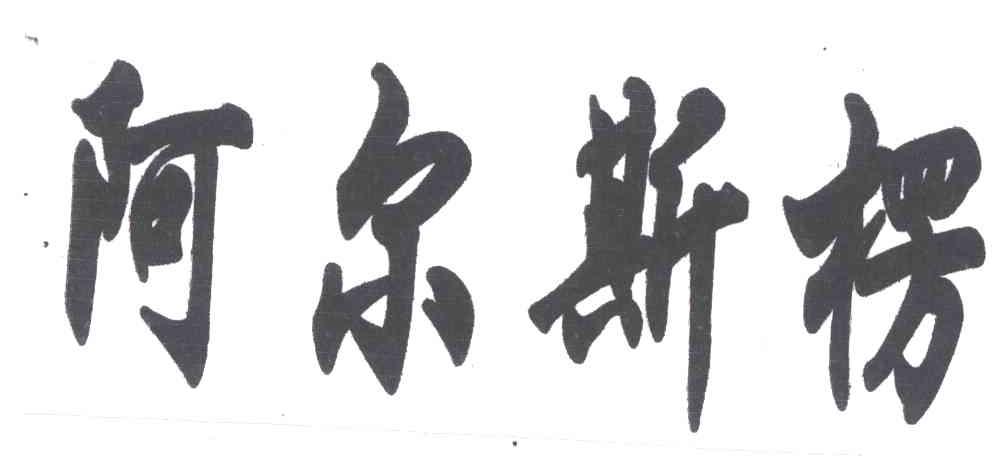 阿尔斯楞